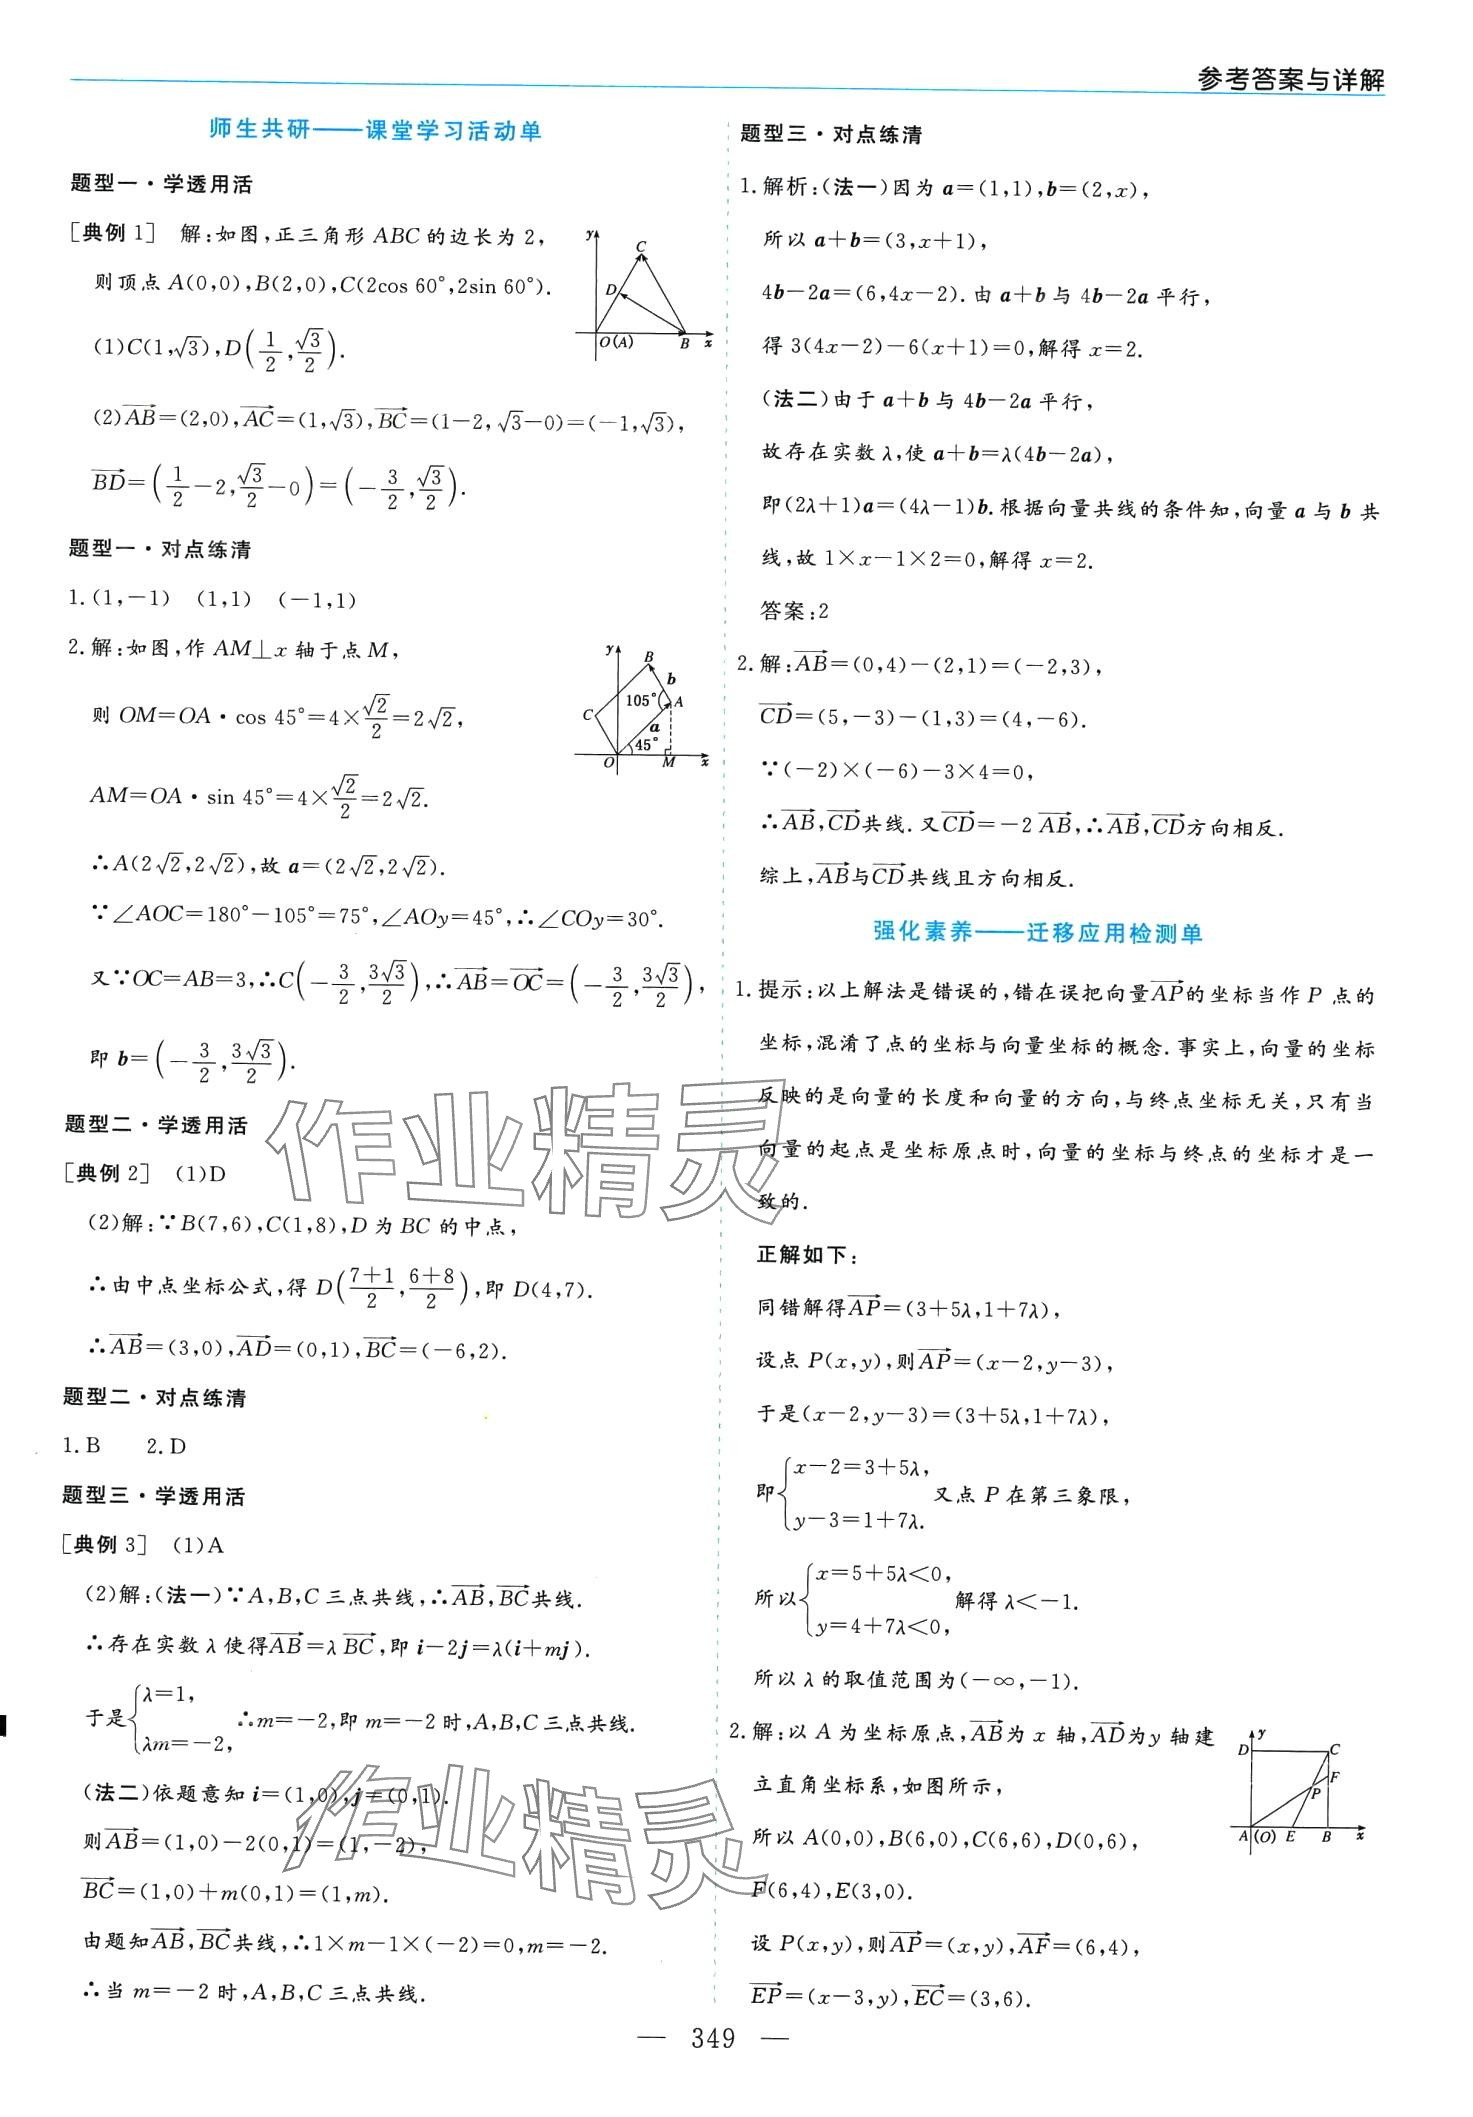 参考答案与详解
师生共研——课堂学习活动单
题型一·学透用活
[典例1] 解:如图,正三角形 ABC 的边长为 2,
则顶点 A(0,0),B(2,0),C(2cos 60°,2sin 60°).
(1)C(1,√3),D(1/2,√3/2).
y
C
D
O(A) B x
(2)AB→=(2,0),AC→=(1,√3),BC→=(1-2,√3-0)=(-1,√3),
BD→=(1/2-2,√3/2-0)=(-3/2,√3/2).
题型一·对点练清
1.(1,-1) (1,1) (-1,1)
2.解:如图,作 AM⊥x 轴于点 M,
则 OM=OA·cos 45°=4×√2/2=2√2,
AM=OA·sin 45°=4×√2/2=2√2.
y
B
b
105° A
C
a
45°
O M x
∴A(2√2,2√2),故 a=(2√2,2√2).
∵∠AOC=180°-105°=75°,∠AOy=45°,∴∠COy=30°.
又∵OC=AB=3,∴C(-3/2,3√3/2),∴AB→=OC→=(-3/2,3√3/2),
即 b=(-3/2,3√3/2).
题型二·学透用活
[典例2] (1)D
(2)解:∵B(7,6),C(1,8),D 为 BC 的中点,
∴由中点坐标公式,得 D((7+1)/2,(6+8)/2),即 D(4,7).
∴AB→=(3,0),AD→=(0,1),BC→=(-6,2).
题型二·对点练清
1.B 2.D
题型三·学透用活
[典例3] (1)A
(2)解:(法一)∵A,B,C 三点共线,∴AB→,BC→共线.
∴存在实数 λ 使得AB→=λBC→,即 i-2j=λ(i+mj).
于是{λ=1, λm=-2, ∴m=-2,即 m=-2 时,A,B,C 三点共线.
(法二)依题意知 i=(1,0),j=(0,1).
则AB→=(1,0)-2(0,1)=(1,-2),
BC→=(1,0)+m(0,1)=(1,m).
由题知AB→,BC→共线,∴1×m-1×(-2)=0,m=-2.
∴当 m=-2 时,A,B,C 三点共线.
题型三·对点练清
1.解析:(法一)因为 a=(1,1),b=(2,x),
所以 a+b=(3,x+1),
4b-2a=(6,4x-2).由 a+b 与 4b-2a 平行,
得 3(4x-2)-6(x+1)=0,解得 x=2.
(法二)由于 a+b 与 4b-2a 平行,
故存在实数 λ,使 a+b=λ(4b-2a),
即(2λ+1)a=(4λ-1)b.根据向量共线的条件知,向量 a 与 b 共
线,故 1×x-1×2=0,解得 x=2.
答案:2
2.解:AB→=(0,4)-(2,1)=(-2,3),
CD→=(5,-3)-(1,3)=(4,-6).
∵(-2)×(-6)-3×4=0,
∴AB→,CD→共线.又CD→=-2AB→,∴AB→,CD→方向相反.
综上,AB→与CD→共线且方向相反.
强化素养——迁移应用检测单
1.提示:以上解法是错误的,错在误把向量AP→的坐标当作 P 点的
坐标,混淆了点的坐标与向量坐标的概念.事实上,向量的坐标
反映的是向量的长度和向量的方向,与终点坐标无关,只有当
向量的起点是坐标原点时,向量的坐标与终点的坐标才是一
致的.
正解如下:
同错解得AP→=(3+5λ,1+7λ),
设点 P(x,y),则AP→=(x-2,y-3),
于是(x-2,y-3)=(3+5λ,1+7λ),
即{x-2=3+5λ, y-3=1+7λ. 又点 P 在第三象限,
所以{x=5+5λ<0, y=4+7λ<0, 解得 λ<-1.
所以 λ 的取值范围为(-∞,-1).
2.解:以 A 为坐标原点,AB→为 x 轴,AD→为 y 轴建
立直角坐标系,如图所示,
所以 A(0,0),B(6,0),C(6,6),D(0,6),
F(6,4),E(3,0).
y
D C
F
P
A (O) E B x
设 P(x,y),则AP→=(x,y),AF→=(6,4),
EP→=(x-3,y),EC→=(3,6).
— 349 —
作业精灵
作业精灵